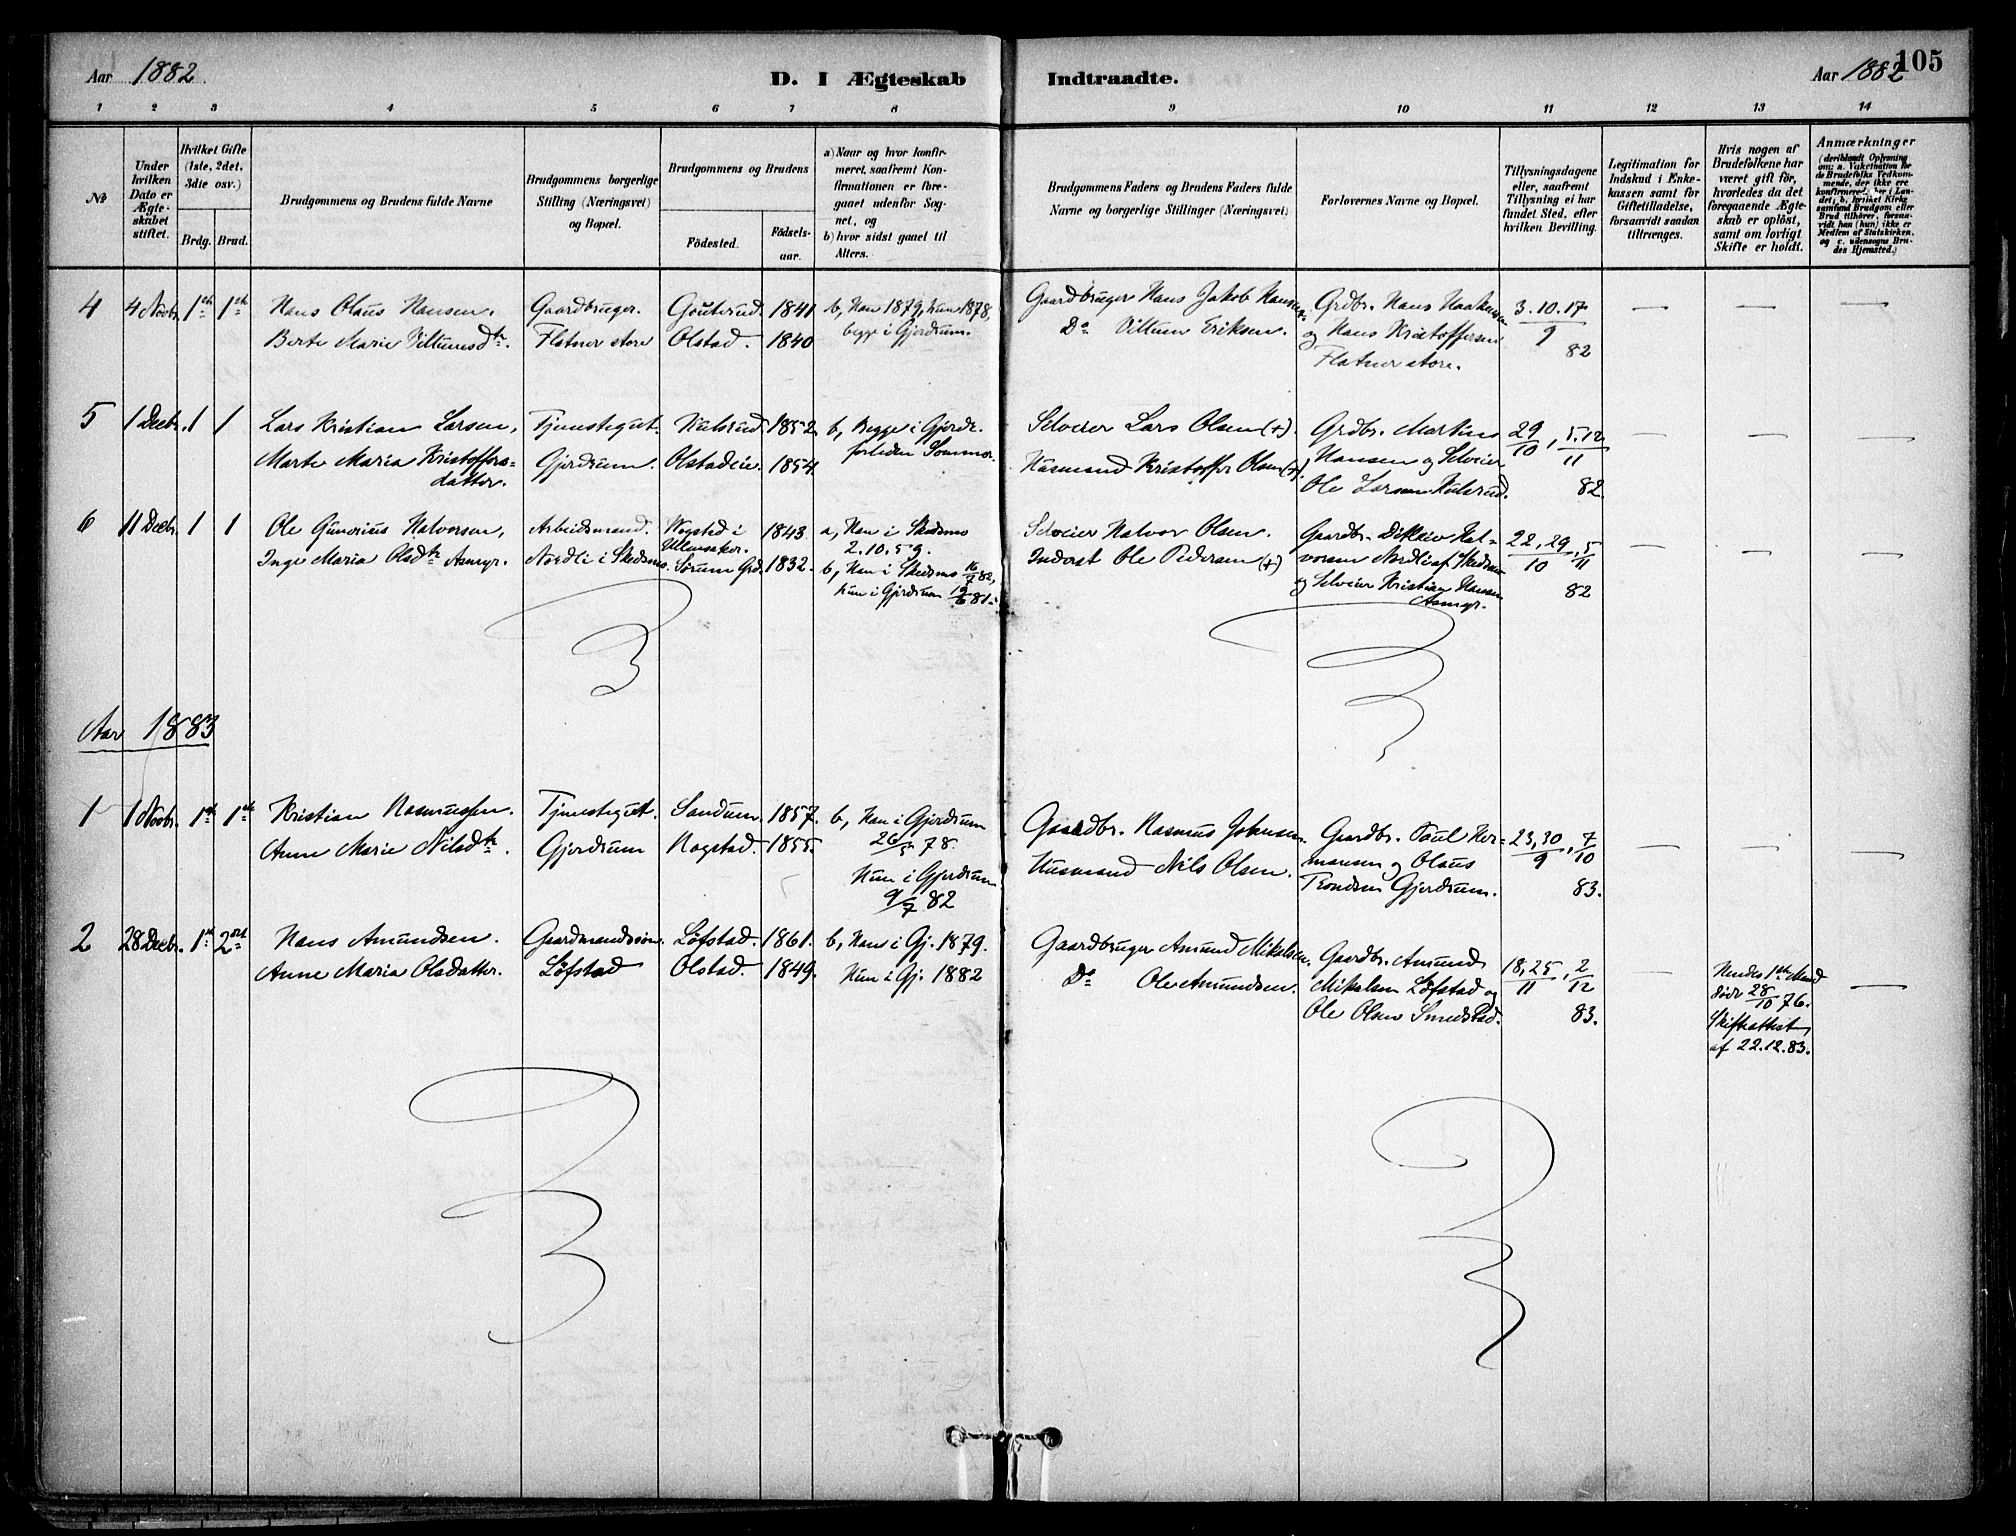 Aar 1882
D. I Ægteskab Indtraadte.
Aar 1882 105
1 2 3 4 5 6 7 8 9 10 11 12 13 14
№
Under hvilken Dato er Ægteskabet stiftet.
Hvilket Gifte (1ste, 2det, 3die osv.)
Brdg. Brud.
Brudgommens og Brudens fulde Navne
Brudgommens borgerlige Stilling (Næringsvei) og Bopæl.
Brudgommens og Brudens
Födested. Födselsaar.
a) Naar og hvor konfirmeret, saafremt Konfirmationen er foregaaet udenfor Sognet, og
b) hvor sidst gaaet til Alters.
Brudgommens Faders og Brudens Faders fulde Navne og borgerlige Stillinger (Næringsvei)
Forlovernes Navne og Bopæl.
Tillysningsdagene eller, saafremt Tillysning ei har fundet Sted, efter hvilken Bevilling.
Legitimation for Indskud i Enkekassen samt for Giftetilladelse, forsaavidt saadan tiltrænges.
Hvis nogen af Brudefolkene har været gift för, hvorledes da det foregaaende Ægteskab er oplöst, samt om lovligt Skifte er holdt.
Anmærkninger
(deriblandt Oplysning om: a. Vaksination for de Brudefolks Vedkommende, der ikke ere konfirmerede her i Landet; b. hvilket Kirkesamfund Brudgom eller Brud tilhörer, forsaavidt han (hun) ikke er Medlem af Statskirken, og c. udensogns Brudes Hjemsted.)
4 4 Novbr. 1ste 1ste Hans Olaus Hansen. Gaardbruger. 1841 b, Han 1879, hun 1878, Gaardbruger Hans Jakob Hansen. Grdbr. Hans Haakensen 3.10.17 — — —
Berte Marie Villumsdtr. Flatner store Olstad. 1840 begge i Gjerdrum. Do Villum Eriksen. og Hans Kristoffersen 9
Flatner store. 82
5 1 Decbr. 1 1 Lars Kristian Larsen, Tjenestegut. Kulsrud 1852 b, Begge i Gjerdr. Selveier Lars Olsen (+). Grdbr. Martins 29/10, 5.12/11 — — —
Marte Maria Kristoffers- Gjerdrum. Olstadeie. 1854 forleden Sommer. Husmand Kristoffer Olsen (+). Hansen og Selveier
datter. Ole Larsen Kulsrud. 82
6 11 Decbr. 1 1 Ole Gunerius Halvorsen, Arbeidsmand. Vogstad i Ullensaker. 1843. a, Han i Skedsmo 2.10.59. Selveier Halvor Olsen. Gaardbr. Ditlev Hal- 22,29/10, 5/11 — — —
Inge Maria Olsdtr. Asmyr. Nordli i Skedsmo. Sørum Grd. 1832. b, Han i Skedsmo 16/7 82, Inderst Ole Pedersen (+) vorsen Nordli af Skedsmo 82
hun i Gjerdrum 19/6 81. og Selveier Kristian Hansen
Asmyr.
Aar 1883
1 1 Novbr. 1ste 1ste Kristian Rasmussen. Tjenestegut. Sandum. 1857. b, Han i Gjerdrum Gaardbr. Rasmus Johnsen Gaardbr. Poul Her- 23,30/9, 7/10 — — —
Anne Marie Nilsdtr. Gjerdrum Rogstad. 1855. 26/5 78. Husmand Nils Olsen. mansen og Olaus 83.
Hun i Gjerdrum Trondsen Gjerdrum.
9/7 82
2 28 Decbr. 1ste 2det Hans Amundsen. Gaardmandssøn. Löfstad. 1861. b, Han i Gj. 1879. Gaardbruger Amund Mikelsen. Gaardbr. Amund 18,25/11, 2/12 — Hendes 1ste Mand —
Anne Maria Olsdatter. Löfstad Olstad. 1849. Hun i Gj. 1882 Do Ole Amundsen. Mikelsen Löfstad og döde 28/10 76.
Ole Olsen Smedstad. 83. Skifteattest
af 22.12.83.